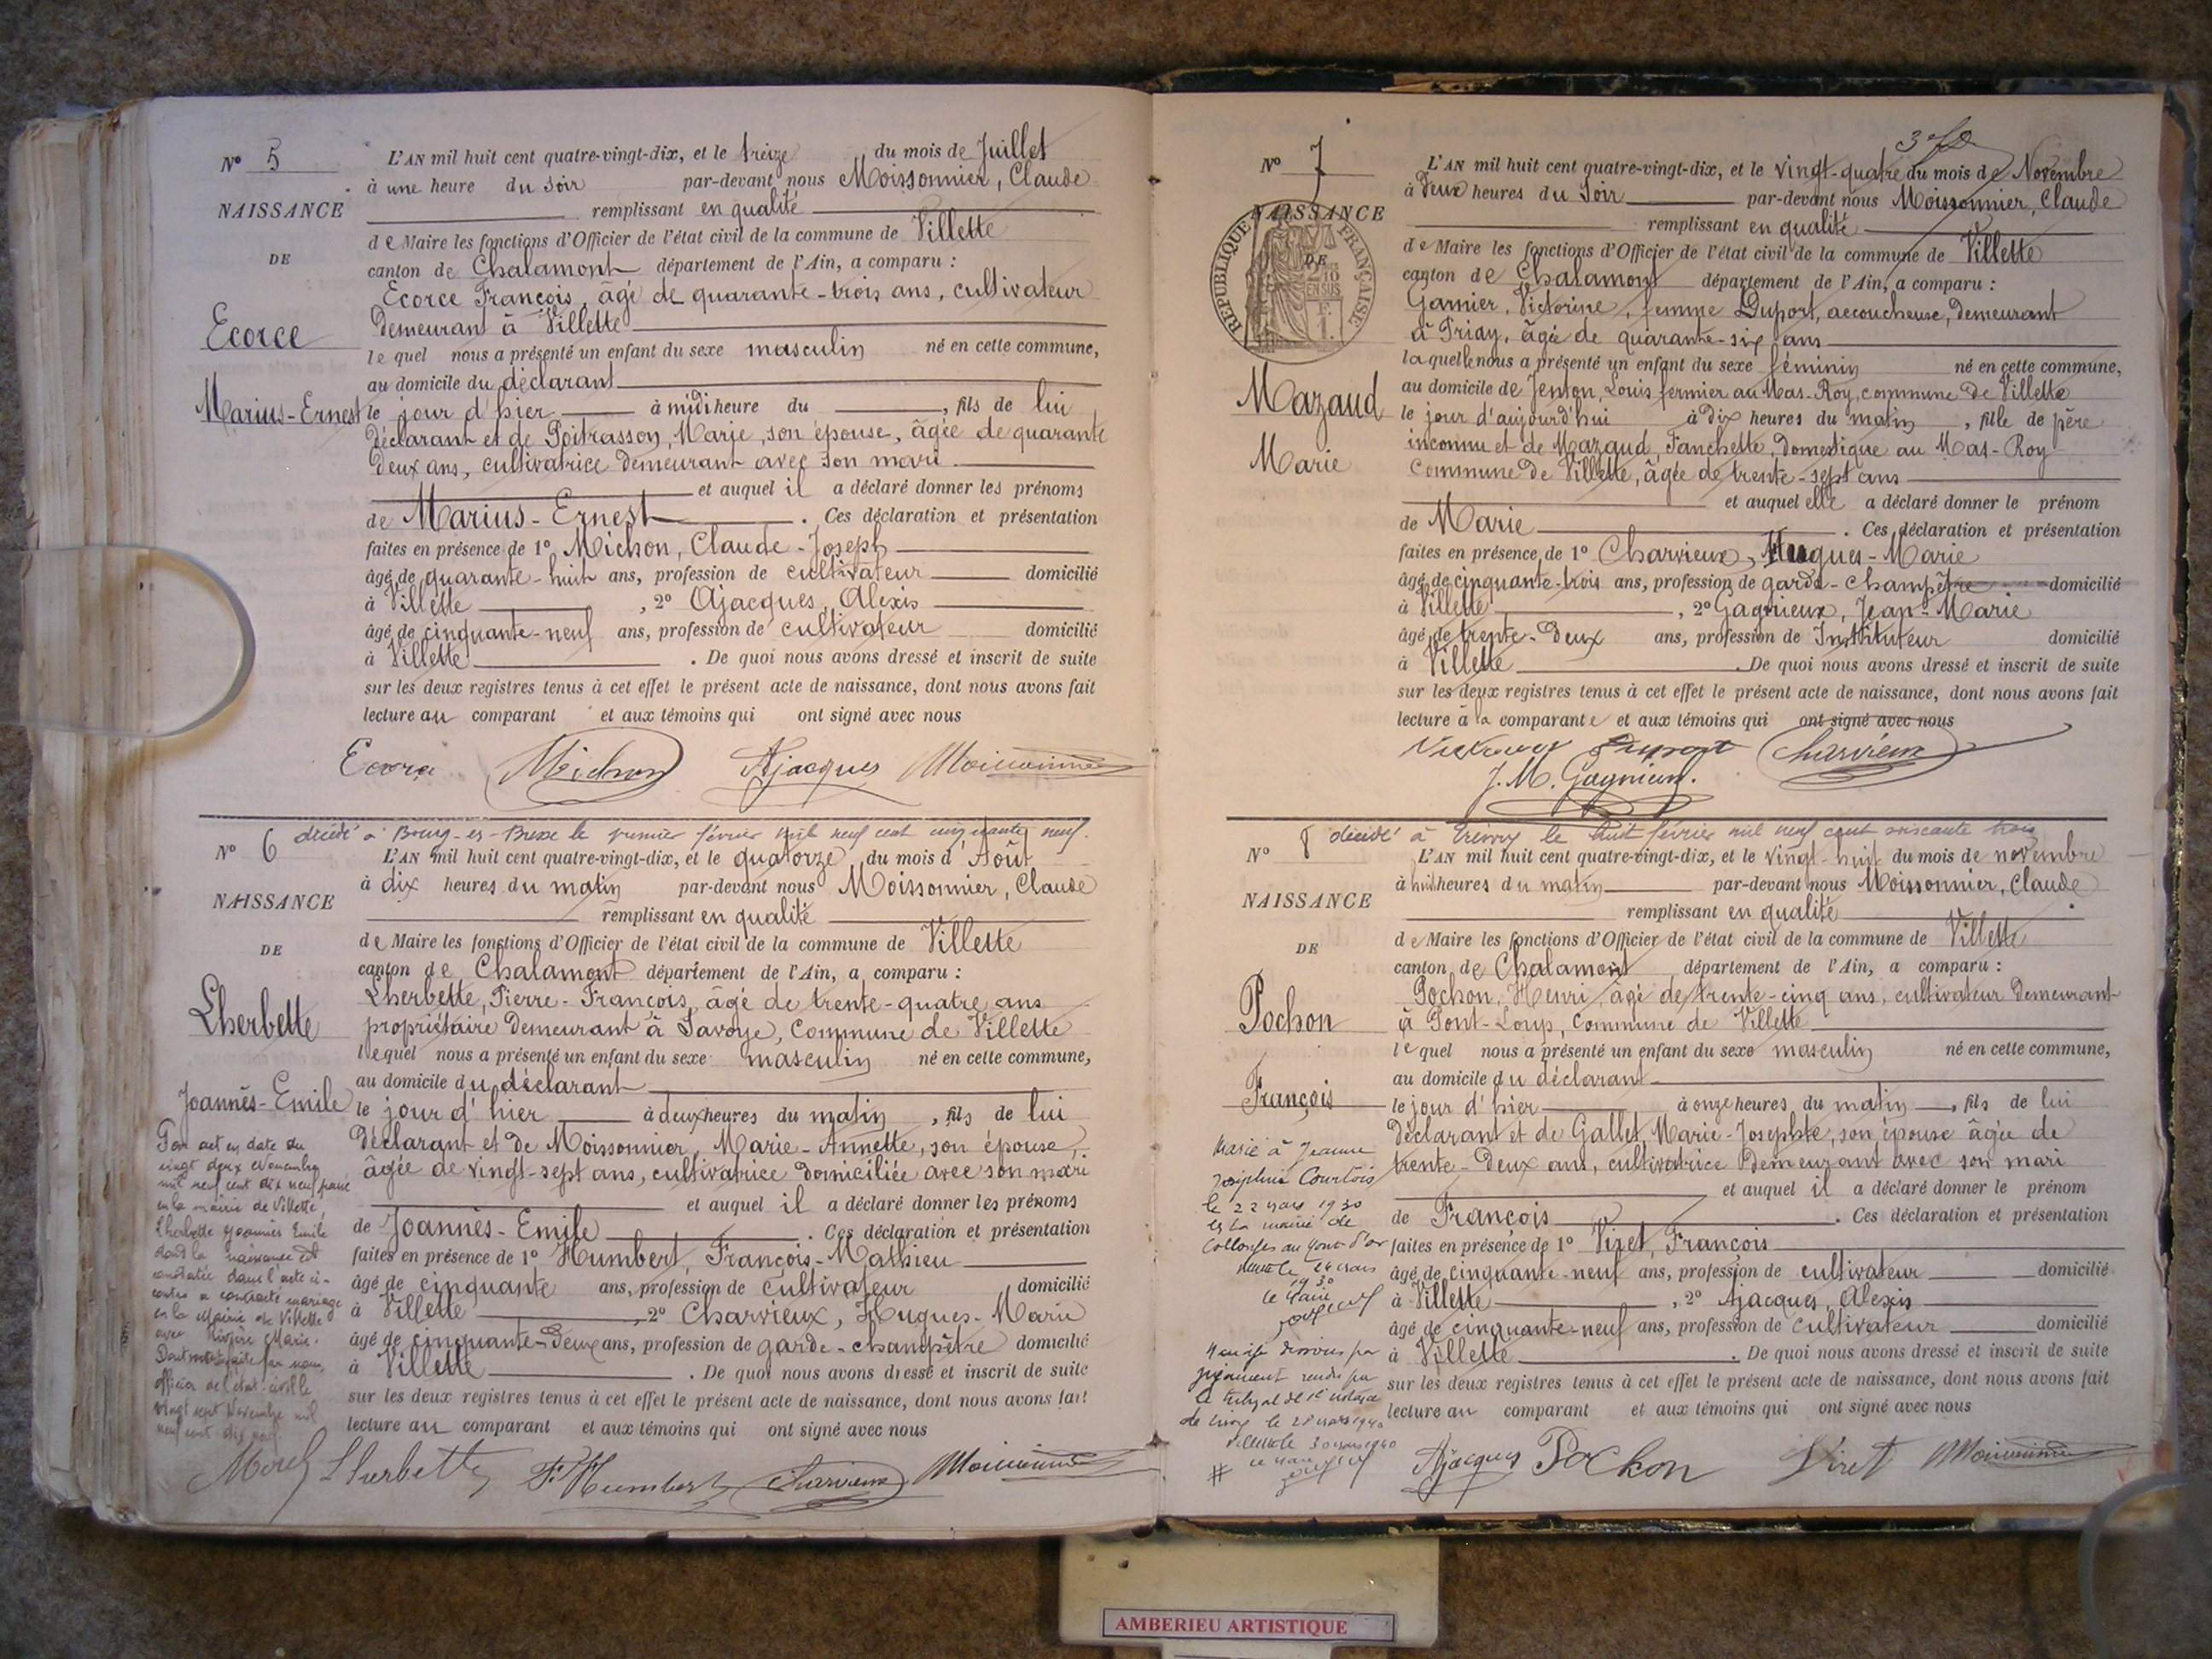 Nº 5
NAISSANCE
DE
Ecorce
Marius-Ernest
L'AN mil huit cent quatre-vingt-dix, et le treize du mois de Juillet
à une heure du Soir par-devant nous Moissonnier, Claude
remplissant en qualité
de Maire les fonctions d'Officier de l'état civil de la commune de Villette
canton de Chalamont département de l'Ain, a comparu :
Ecorce François, âgé de quarante-trois ans, cultivateur
Demeurant à Villette
lequel nous a présenté un enfant du sexe masculin né en cette commune,
au domicile du déclarant
le jour d'hier à midi heure du , fils de lui
déclarant et de Poitrasson, Marie, son épouse, âgée de quarante
deux ans, cultivatrice demeurant avec son mari
et auquel il a déclaré donner les prénoms
de Marius-Ernest . Ces déclaration et présentation
faites en présence de 1º Michon, Claude-Joseph
âgé de quarante-huit ans, profession de cultivateur domicilié
à Villette , 2º Ajacques, Alexis
âgé de cinquante-neuf ans, profession de cultivateur domicilié
à Villette . De quoi nous avons dressé et inscrit de suite
sur les deux registres tenus à cet effet le présent acte de naissance, dont nous avons fait
lecture au comparant et aux témoins qui ont signé avec nous
Ecorce Michon Ajacques Moissonnier
décédé à Bourg-en-Bresse le premier février mil neuf cent cinquante neuf.
Nº 6
NAISSANCE
DE
Lherbette
Joannès-Emile
Par act en date du
vingt deux Novembre
mil neuf cent dix neuf passé
en la mairie de Villette,
Lherbette Joannès Emile
dont la naissance est
constatée dans l'acte ci-
contre a contracté mariage
en la Mairie de Villette
avec Rivière Marie.
Dont mention faite par nous,
officier de l'état civil le
vingt sept Novembre mil
neuf cent dix neuf.
L'AN mil huit cent quatre-vingt-dix, et le quatorze du mois d'Août
à dix heures du matin par-devant nous Moissonnier, Claude
remplissant en qualité
de Maire les fonctions d'Officier de l'état civil de la commune de Villette
canton de Chalamont département de l'Ain, a comparu :
Lherbette, Pierre-François, âgé de trente-quatre ans
propriétaire demeurant à Savoye, Commune de Villette
lequel nous a présenté un enfant du sexe masculin né en cette commune,
au domicile du déclarant
le jour d'hier à deux heures du matin , fils de lui
déclarant et de Moissonnier, Marie-Annette, son épouse,
âgée de vingt-sept ans, cultivatrice domiciliée avec son mari
et auquel il a déclaré donner les prénoms
de Joannès-Emile . Ces déclaration et présentation
faites en présence de 1º Humbert, François-Mathieu
âgé de cinquante ans, profession de cultivateur domicilié
à Villette , 2º Charvieux, Hugues-Marie
âgé de cinquante-deux ans, profession de garde-champêtre domicilié
à Villette . De quoi nous avons dressé et inscrit de suite
sur les deux registres tenus à cet effet le présent acte de naissance, dont nous avons fait
lecture au comparant et aux témoins qui ont signé avec nous
Morel Lherbette F. Humbert Charvieux Moissonnier
Nº 7
NAISSANCE
DE
RÉPUBLIQUE FRANÇAISE
2/10 EN SUS
Mazaud
Marie
L'AN mil huit cent quatre-vingt-dix, et le vingt-quatre du mois de Novembre
à deux heures du Soir par-devant nous Moissonnier, Claude
remplissant en qualité
de Maire les fonctions d'Officier de l'état civil de la commune de Villette
canton de Chalamont département de l'Ain, a comparu :
Garnier, Victorine, femme Duport, accoucheuse, demeurant
à Priay, âgée de quarante-six ans
laquelle nous a présenté un enfant du sexe féminin né en cette commune,
au domicile de Jenton, Louis fermier au Mas-Roy, commune de Villette
le jour d'aujourd'hui à dix heures du matin , fille de père
inconnu et de Mazaud, Fanchette, domestique au Mas-Roy
Commune de Villette, âgée de trente-sept ans
et auquel elle a déclaré donner le prénom
de Marie . Ces déclaration et présentation
faites en présence de 1º Charvieux, Hugues-Marie
âgé de cinquante-trois ans, profession de garde-champêtre domicilié
à Villette , 2º Gagnieux, Jean-Marie
âgé de trente-deux ans, profession de Instituteur domicilié
à Villette . De quoi nous avons dressé et inscrit de suite
sur les deux registres tenus à cet effet le présent acte de naissance, dont nous avons fait
lecture à la comparante et aux témoins qui ont signé avec nous
Victorine Duport Charvieux
J. M. Gagnieux.
décédé à Trévoux le huit février mil neuf cent soixante trois
Nº 8
NAISSANCE
DE
Pochon
François
Marié à Jeanne
Joséphine Courtois
le 22 mars 1930
en la mairie de
Collonges au Mont-d'or
Villette le 24 mars
1930
Le Maire
Mariage dissous par
jugement rendu par
le tribunal de 1e instance
de le 28 mars 1940
Villette le 30 mars 1940
Le Maire
#
L'AN mil huit cent quatre-vingt-dix, et le vingt-huit du mois de novembre
à huit heures du matin par-devant nous Moissonnier, Claude
remplissant en qualité
de Maire les fonctions d'Officier de l'état civil de la commune de Villette
canton de Chalamont département de l'Ain, a comparu :
Pochon, Henri, âgé de trente-cinq ans, cultivateur demeurant
à Pont-Loup, Commune de Villette
lequel nous a présenté un enfant du sexe masculin né en cette commune,
au domicile du déclarant
le jour d'hier à onze heures du matin , fils de lui
déclarant et de Gallet, Marie-Josephte, son épouse âgée de
trente-deux ans, cultivatrice demeurant avec son mari
et auquel il a déclaré donner le prénom
de François . Ces déclaration et présentation
faites en présence de 1º Viret, François
âgé de cinquante-neuf ans, profession de cultivateur domicilié
à Villette , 2º Ajacques, Alexis
âgé de cinquante-neuf ans, profession de cultivateur domicilié
à Villette . De quoi nous avons dressé et inscrit de suite
sur les deux registres tenus à cet effet le présent acte de naissance, dont nous avons fait
lecture au comparant et aux témoins qui ont signé avec nous
Ajacques Pochon Viret Moissonnier
AMBERIEU ARTISTIQUE